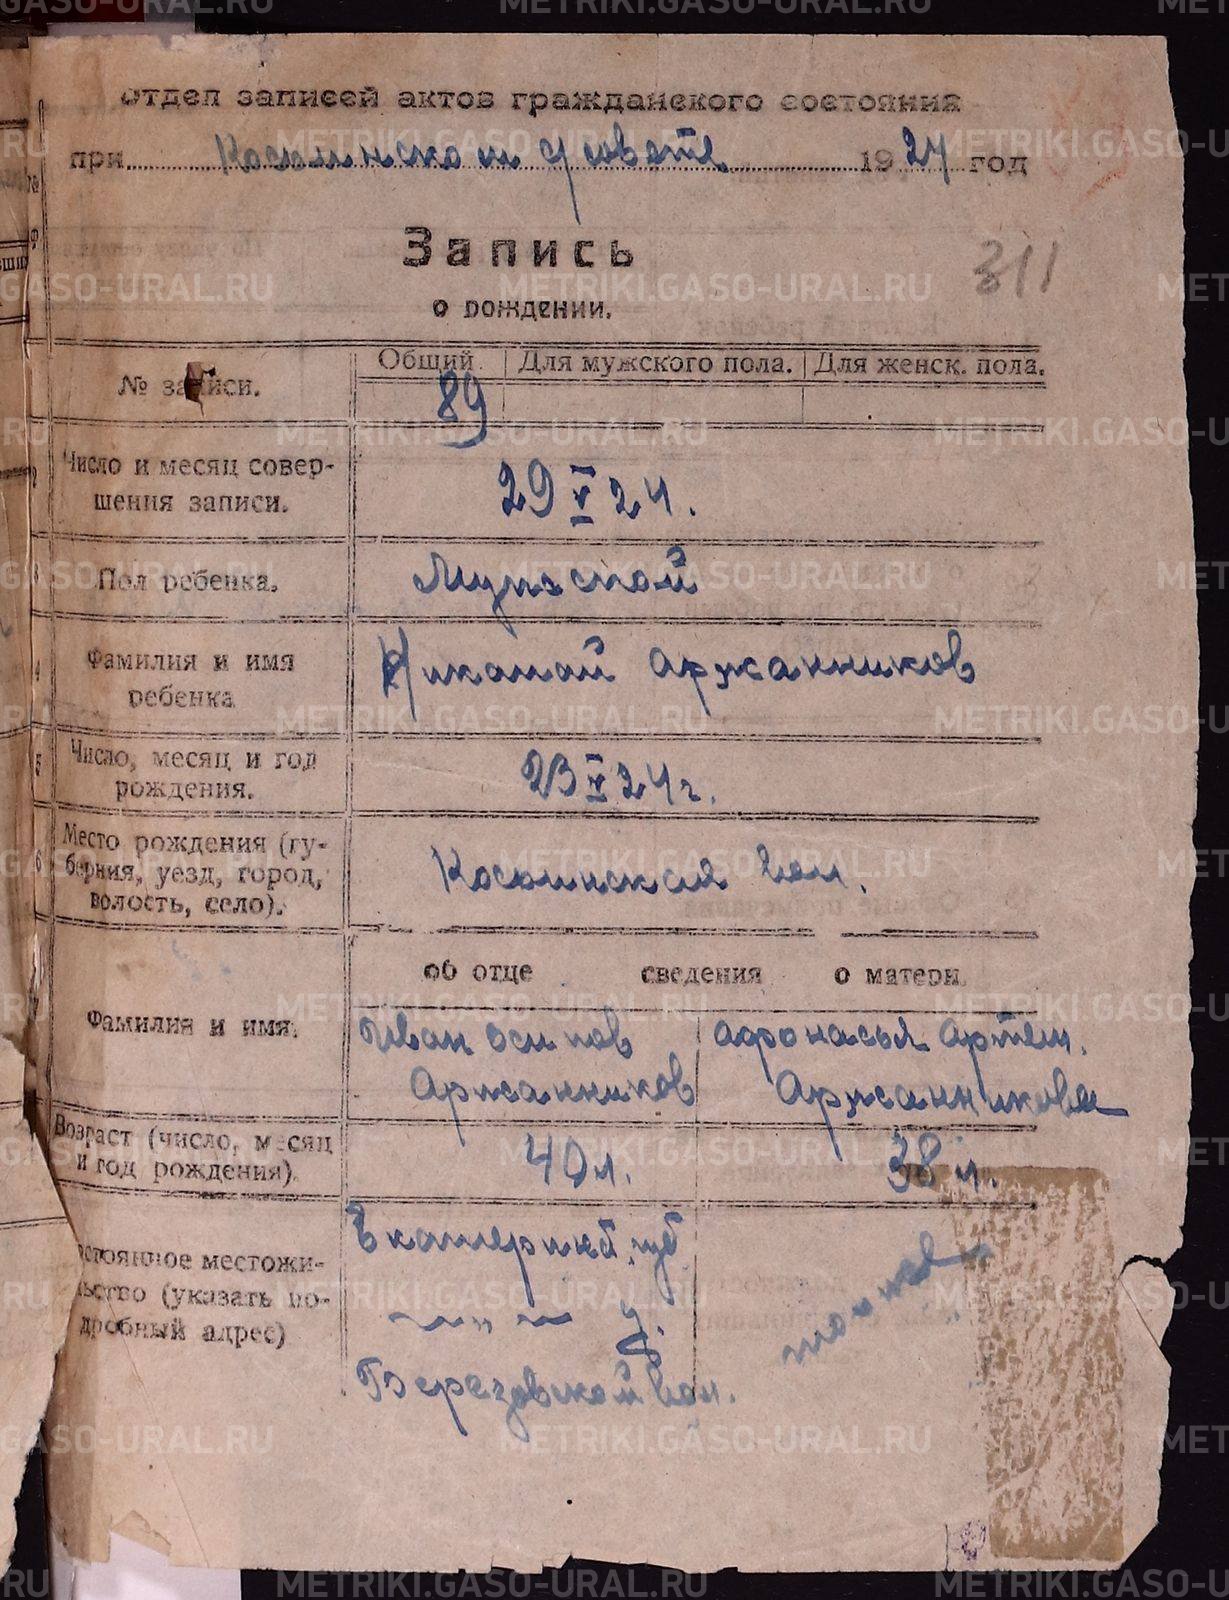 отдел записей актов гражданского состояния
при 1924 год
Запись
о рождении.
311
Общий Для мужского пола. Для женск. пола.
№ записи.
89
Число и месяц совер-
шения записи.
29 V 24.
Пол ребенка.
Мужской
Фамилия и имя
ребенка
Николай Аржанников
Число, месяц и год
рождения.
23 V 24 г.
Место рождения (гу-
берния, уезд, город,
волость, село).
вол.
об отце сведения о матери.
Фамилия и имя.
Иван Осипов
Аржанников
Афонасья Артем.
Аржанникова
Возраст (число, месяц
и год рождения).
40 л. 38 л.
стоянное местожи-
льство (указать по-
дробный адрес)
Екатеринб. губ.
—„— у.
Березовской вол.
METRIKI.GASO-URAL.RU